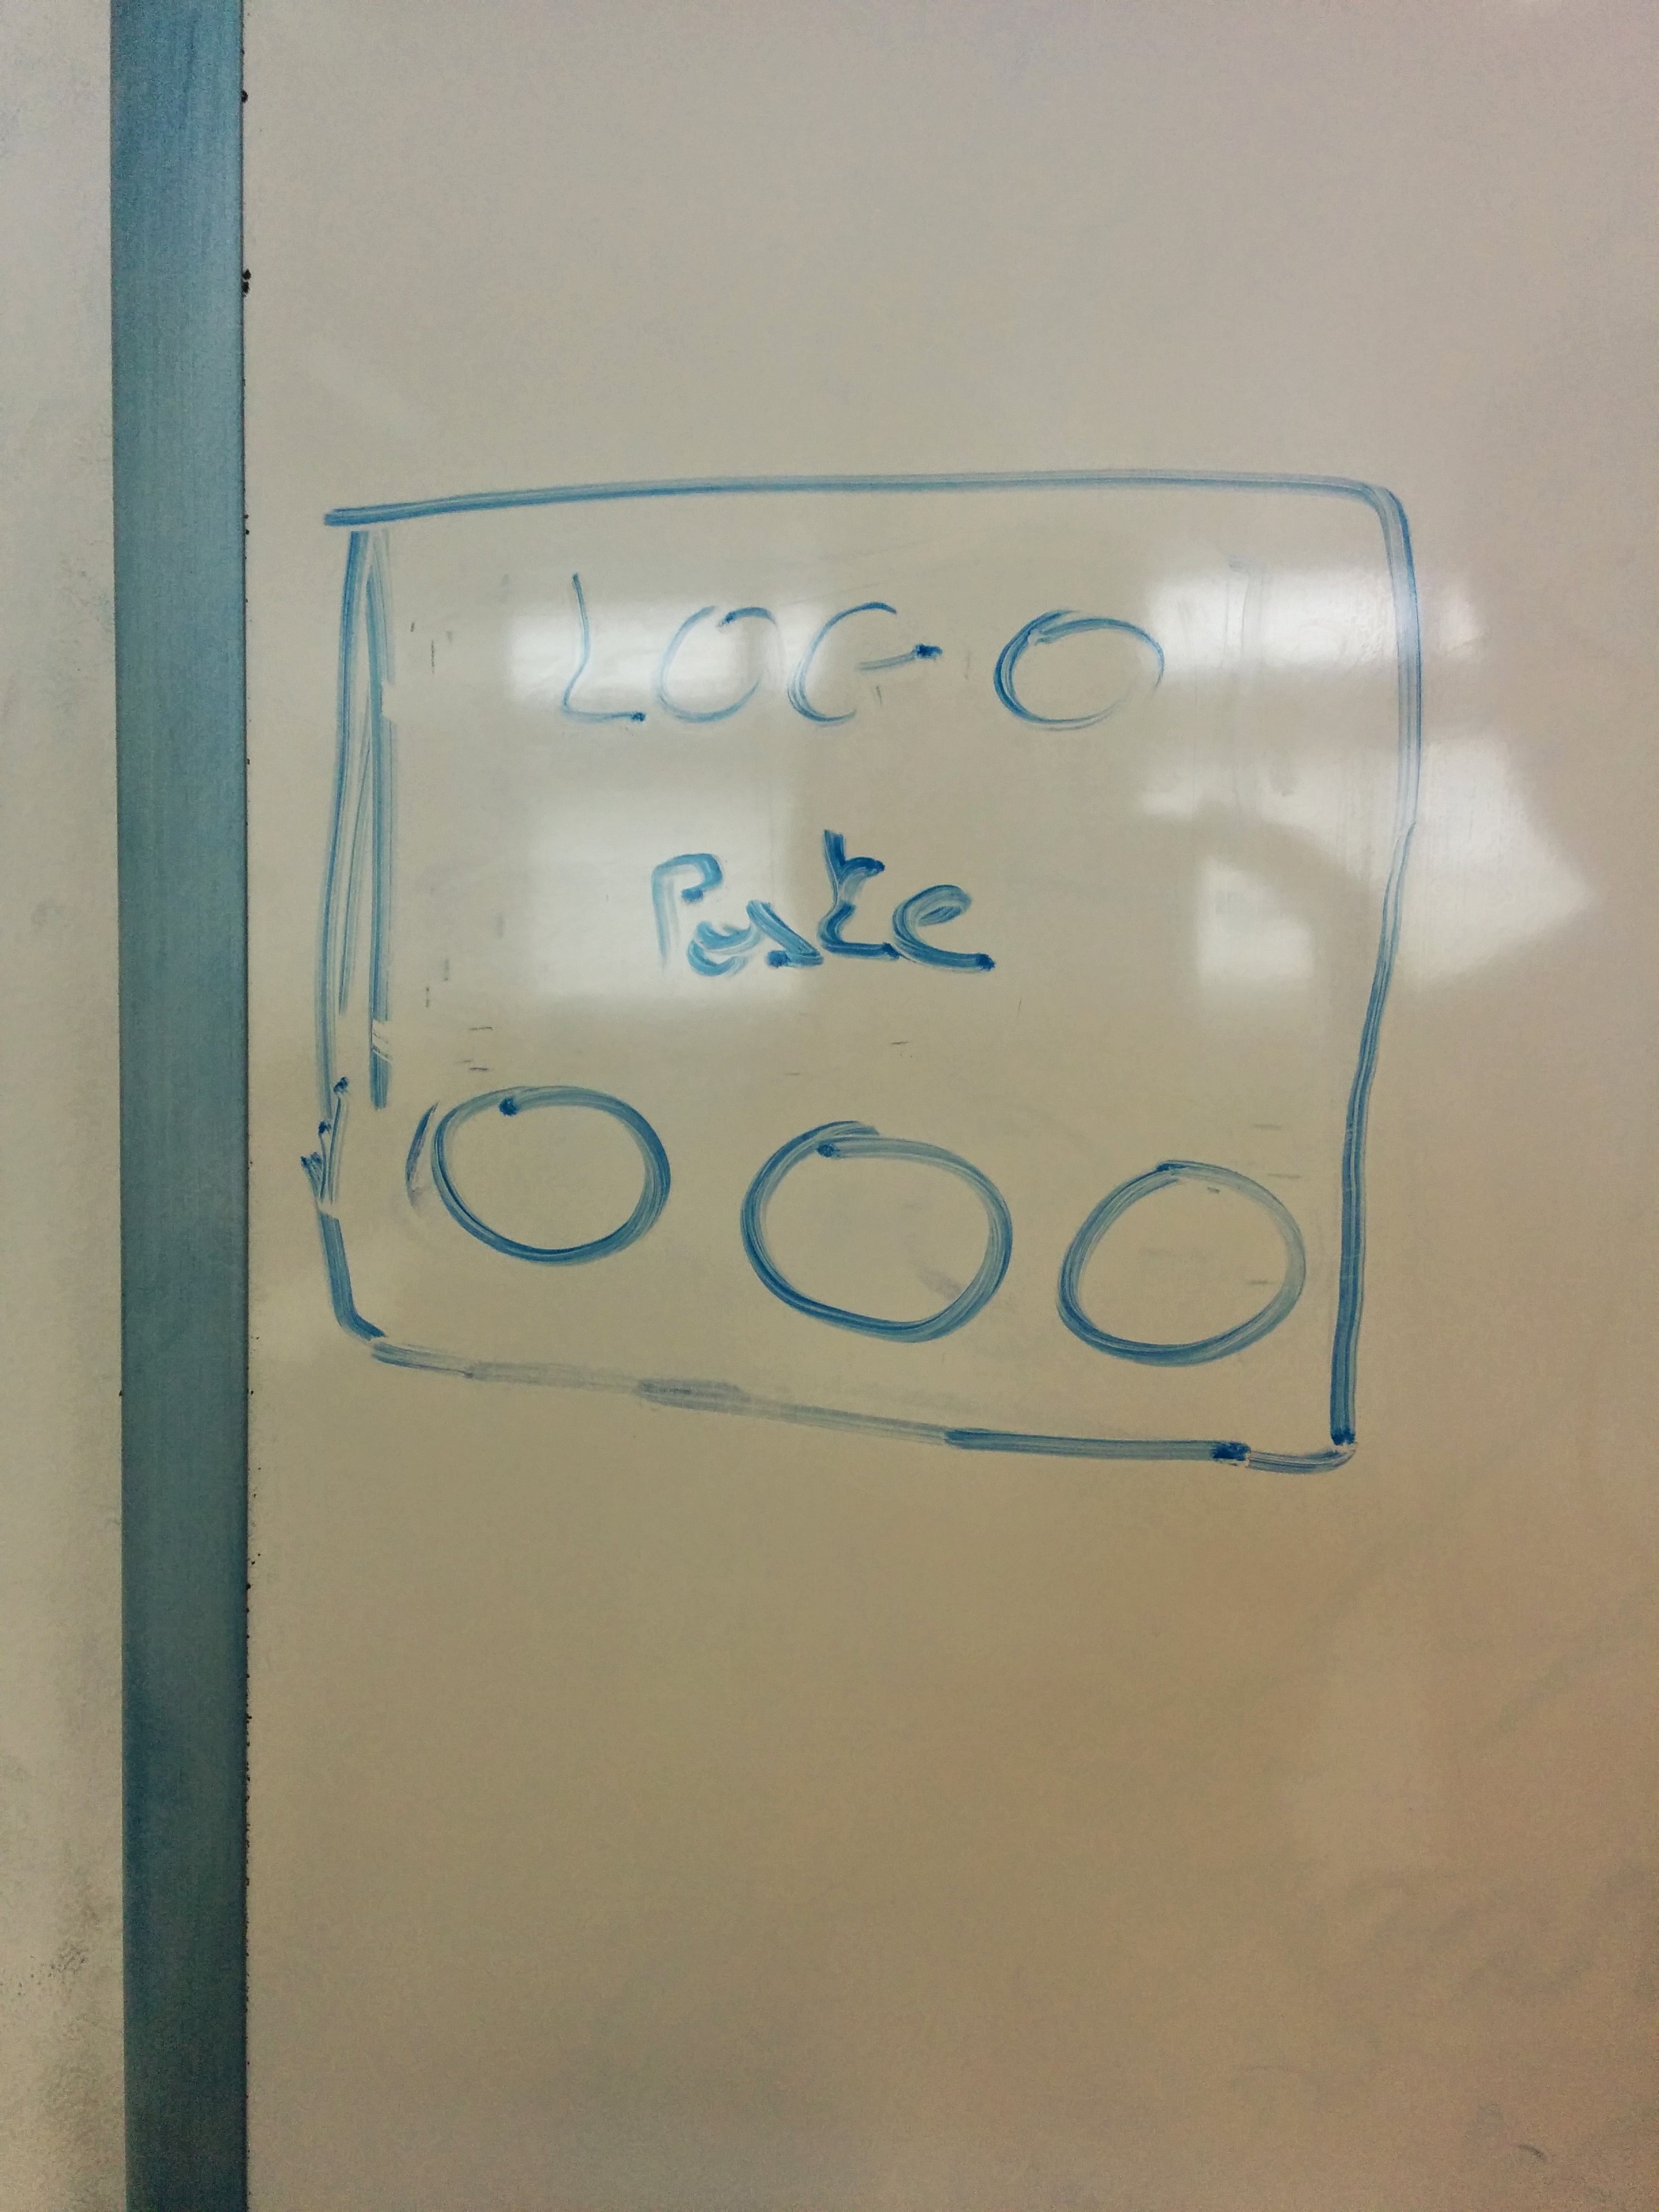 LOGO
Paste